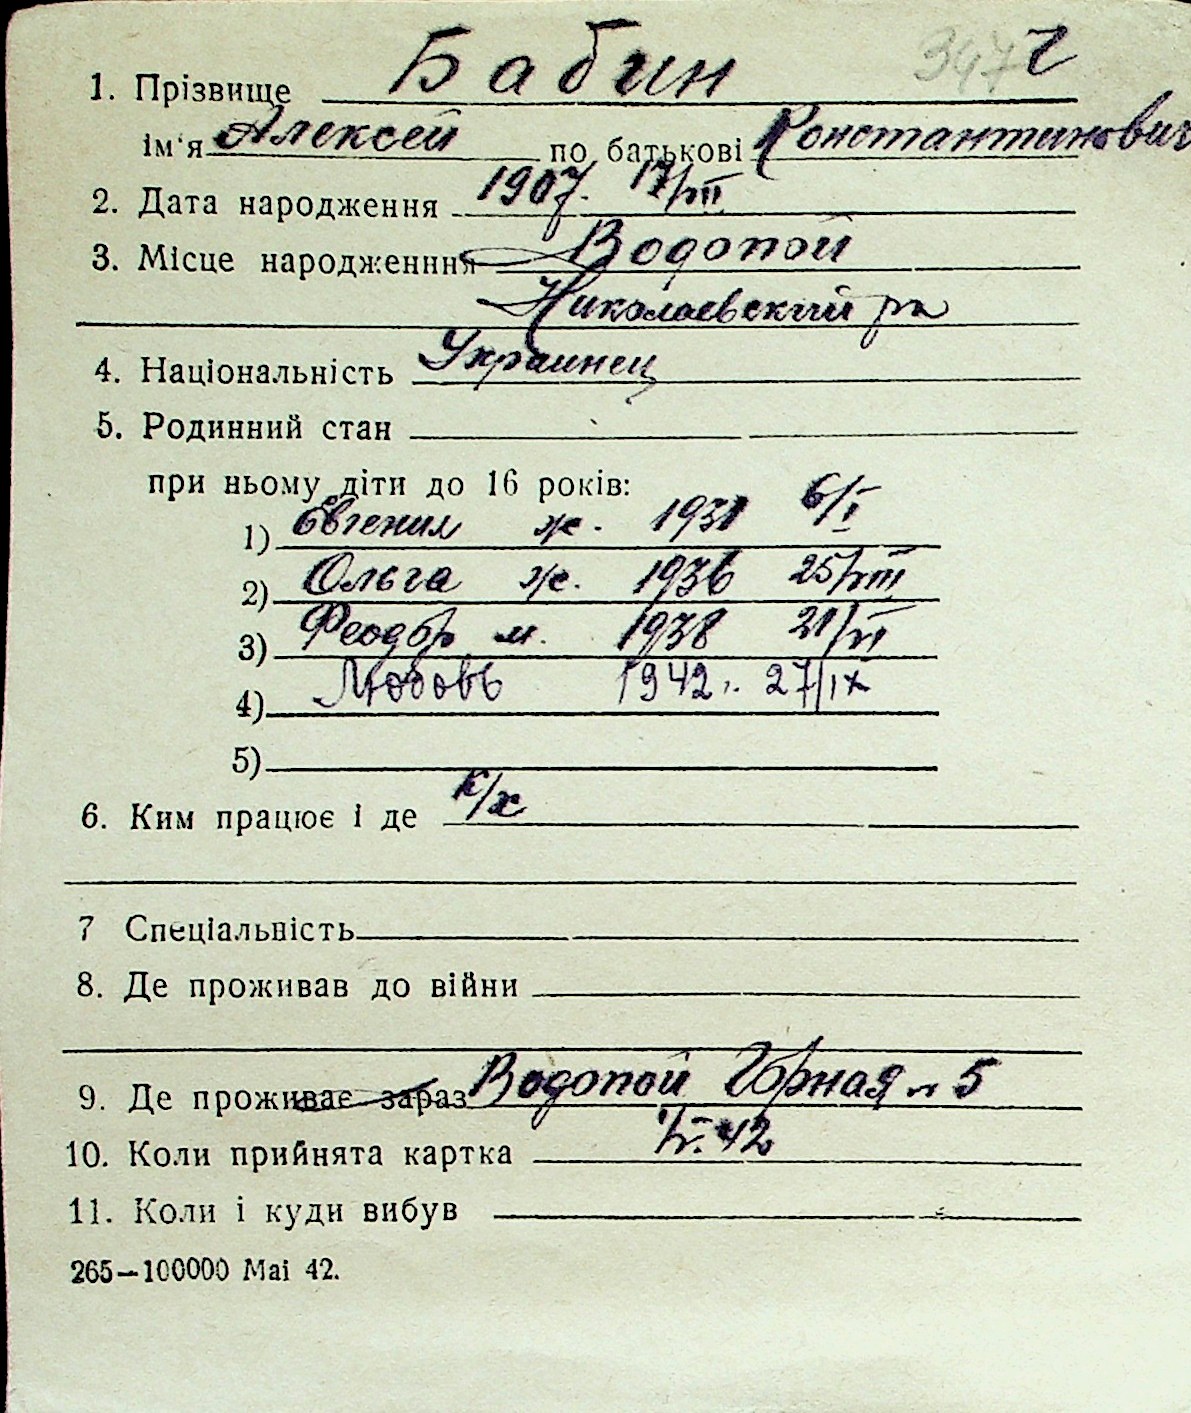 1. Прізвище Бабин 347 г
ім'я Алексей по батькові Константинович
2. Дата народження 1907. 17/VII
3. Місце народженння Водопой
Николаевский рн
4. Національність Украинец
5. Родинний стан
при ньому діти до 16 років:
1) Евгения ж. 1931 6/I
2) Ольга ж. 1936 25/VIII
3) Феодор м. 1938 21/VI
4) Любовь 1942 г. 27/IX
5)
6. Ким працює і де к/х
7 Спеціальність
8. Де проживав до війни
9. Де проживає зараз Водопой Горная 5
10. Коли прийнята картка 42
11. Коли і куди вибув
265—100000 Mai 42.